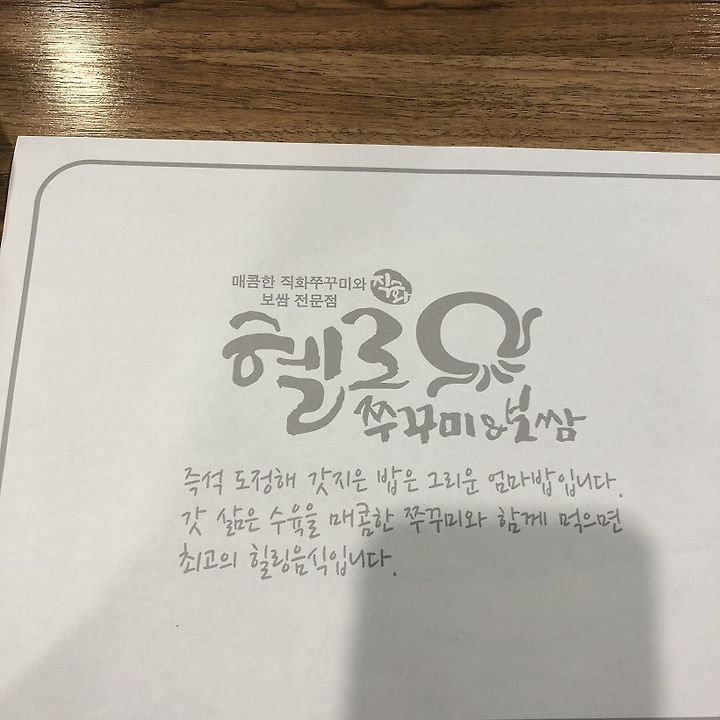 매콤한 직화쭈꾸미와
보쌈 전문점
직화
헬로
쭈꾸미&보쌈
즉석 도정해 갓지은 밥은 그리운 엄마밥입니다.
갓 삶은 수육을 매콤한 쭈꾸미와 함께 먹으면
최고의 힐링음식입니다.